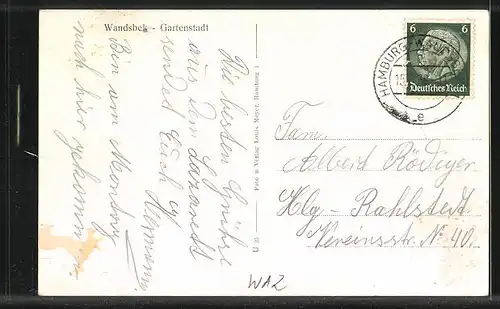 Wandsbek - Gartenstadt
Die besten Grüße
aus dem Lazarett
sendet Euch
Hermann
Bin am Montag
nach hier gekommen
Foto u. Verlag Louis Meyer, Hamburg 1
6 6
Deutsches Reich
HAMBURG-WANDSBEK
e
Fam.
Albert Rödiger
Hbg-Rahlstedt
Vereinsstr. № 40.
WAZ